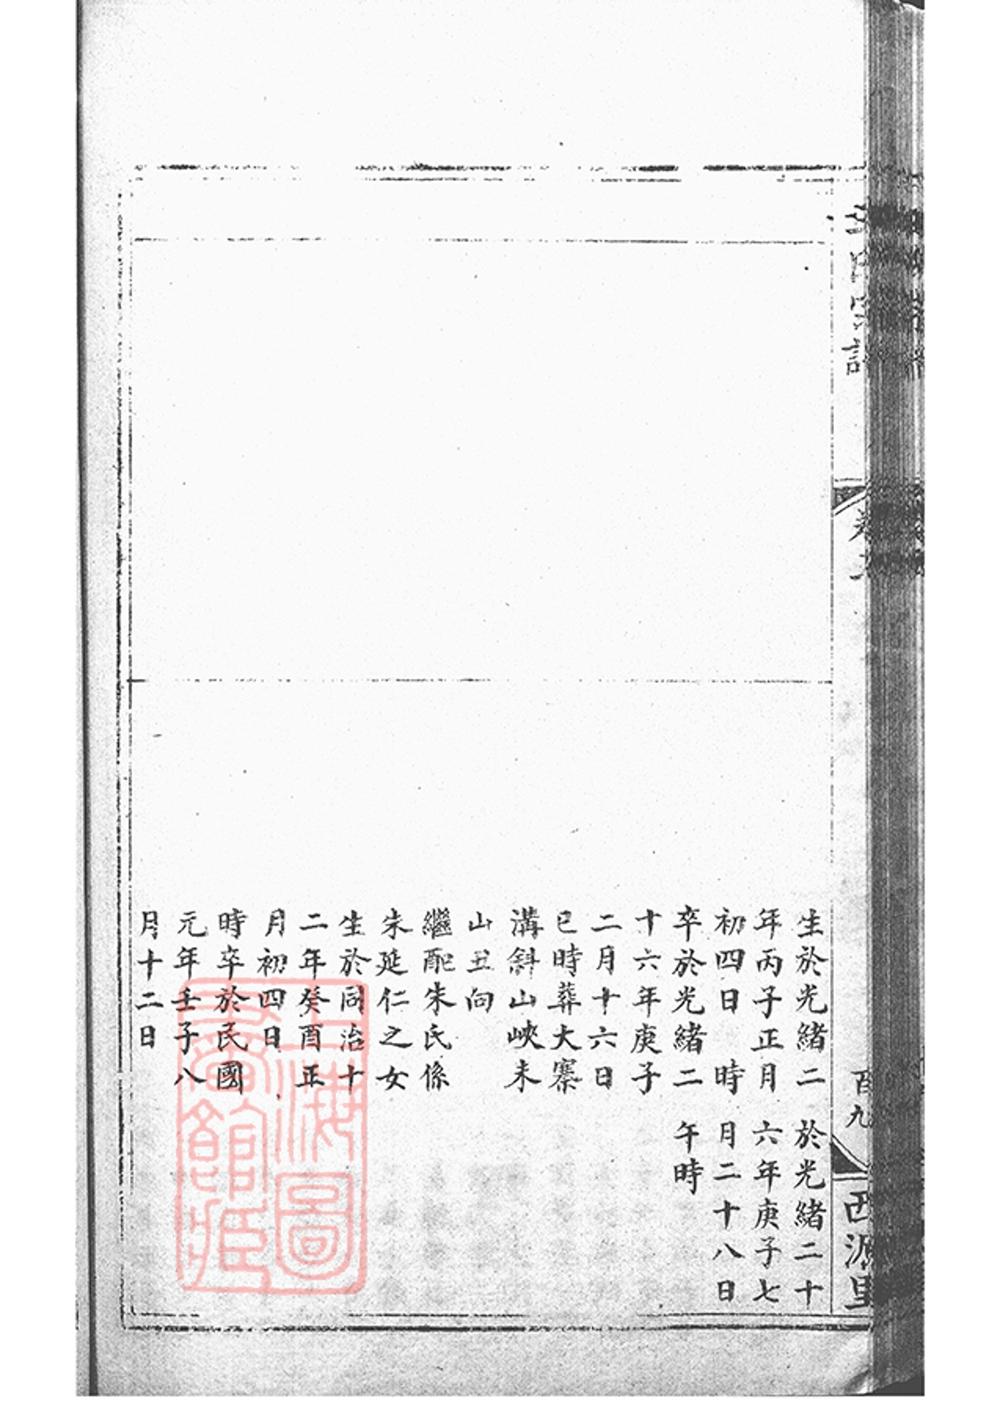 氏宗譜
卷
西源里
生於光緒二
年丙子正月
初四日　時
卒於光緒二
十六年庚子
二月十六日
巳時葬大寨
溝斜山峽未
山丑向
繼配朱氏係
朱延仁之女
生於同治十
二年癸酉正
月初四日
時卒於民國
元年壬子八
月十二日
於光緒二十
六年庚子七
月二十八日
午時
上海圖
書館藏